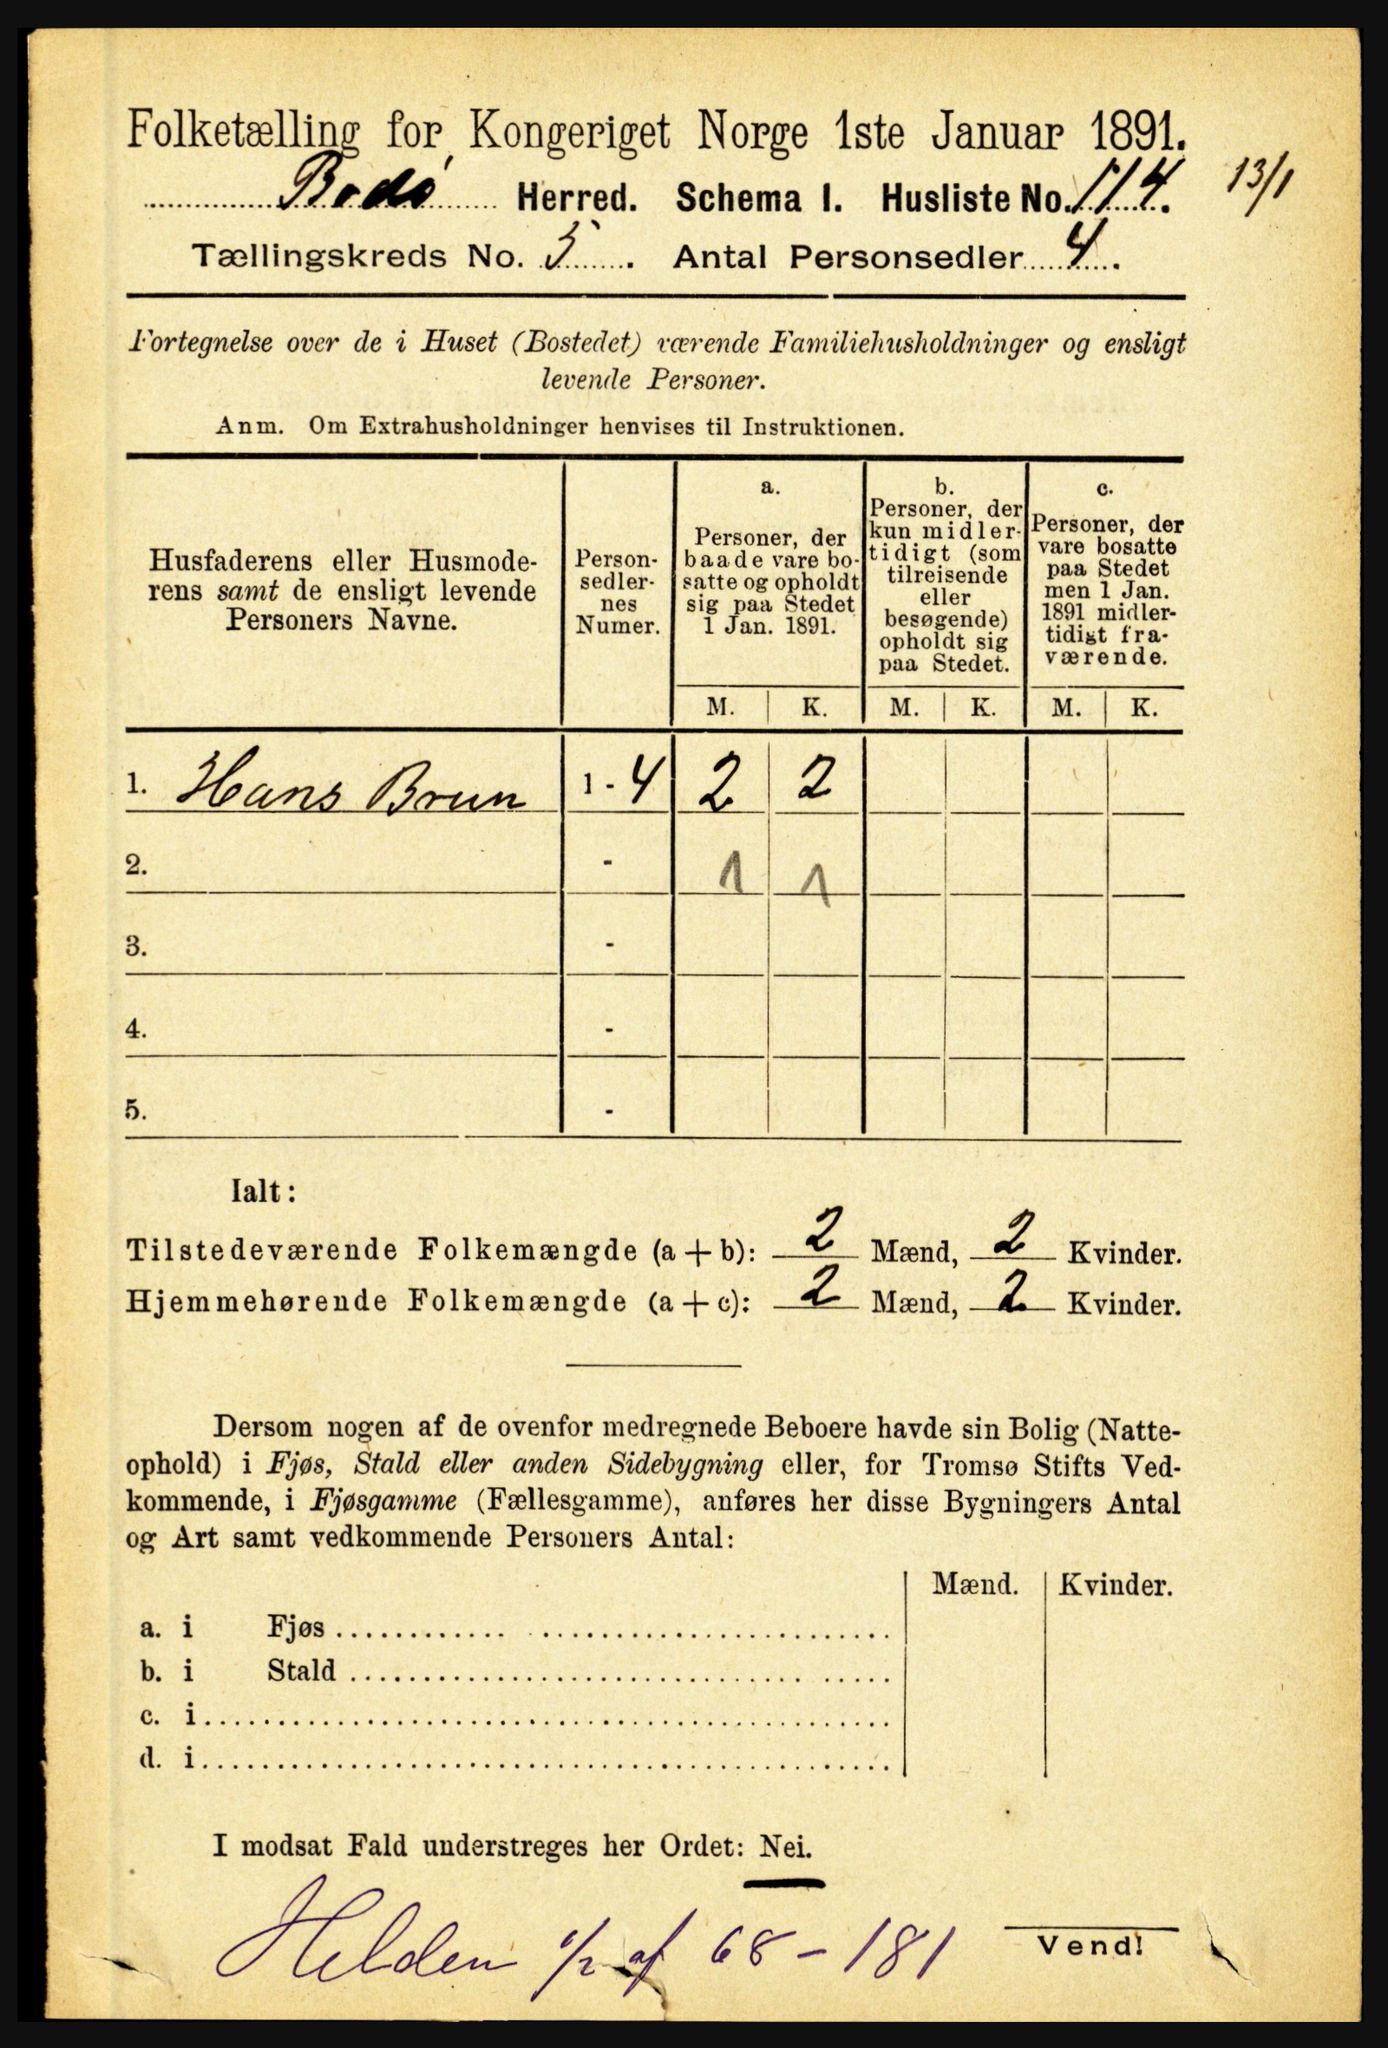 Folketælling for Kongeriget Norge 1ste Januar 1891.
Bodø Herred. Schema I. Husliste No. 114. 13/1
Tællingskreds No. 5. Antal Personsedler 4.
Fortegnelse over de i Huset (Bostedet) værende Familiehusholdninger og ensligt
levende Personer.
Anm. Om Extrahusholdninger henvises til Instruktionen.
Husfaderens eller Husmode-
rens samt de ensligt levende
Personers Navne.
Person-
sedler-
nes
Numer.
a.
Personer, der
baade vare bo-
satte og opholdt
sig paa Stedet
1 Jan. 1891.
b.
Personer, der
kun midler-
tidigt (som
tilreisende
eller
besøgende)
opholdt sig
paa Stedet.
c.
Personer, der
vare bosatte
paa Stedet
men 1 Jan.
1891 midler-
tidigt fra-
værende.
M. K. M. K. M. K.
1. Hans Brun 1 - 4 2 2
2. - 1 1
3. -
4. -
5. -
Ialt:
Tilstedeværende Folkemængde (a + b): 2 Mænd, 2 Kvinder.
Hjemmehørende Folkemængde (a + c): 2 Mænd, 2 Kvinder.
Dersom nogen af de ovenfor medregnede Beboere havde sin Bolig (Natte-
ophold) i Fjøs, Stald eller anden Sidebygning eller, for Tromsø Stifts Ved-
kommende, i Fjøsgamme (Fællesgamme), anføres her disse Bygningers Antal
og Art samt vedkommende Personers Antal:
Mænd. Kvinder.
a. i Fjøs
b. i Stald
c. i
d. i
I modsat Fald understreges her Ordet: Nei.
Helden 1/2 af 68 - 181
Vend!